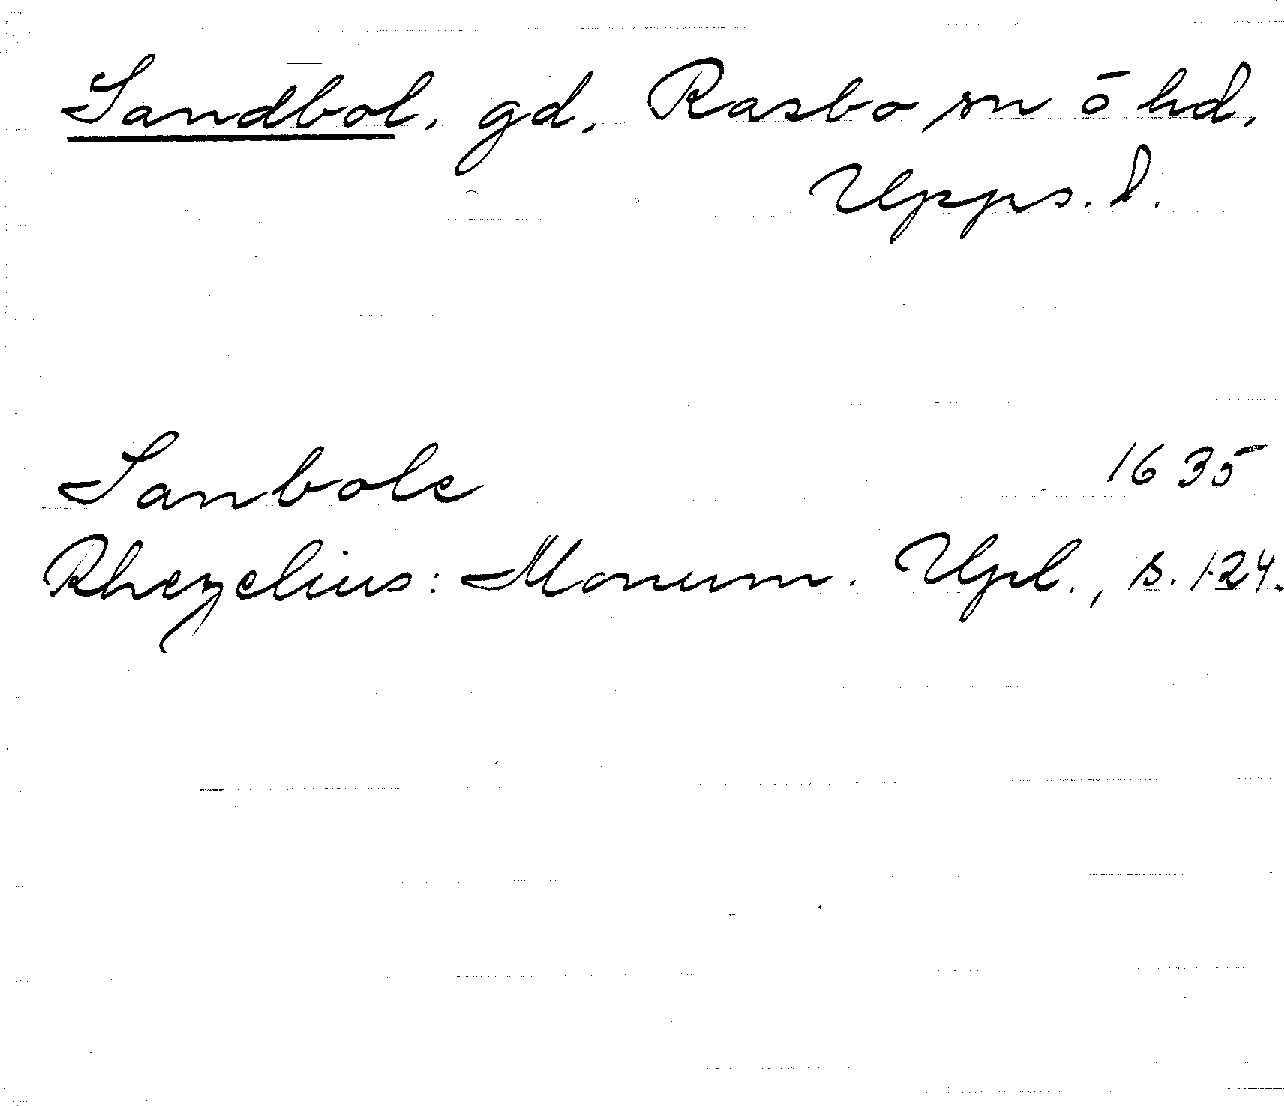 Sandbol, gd, Rasbo sn o hd,
Upps. l.
Sanbole 1635
Rhezelius: Monum. Upl., s. 124.